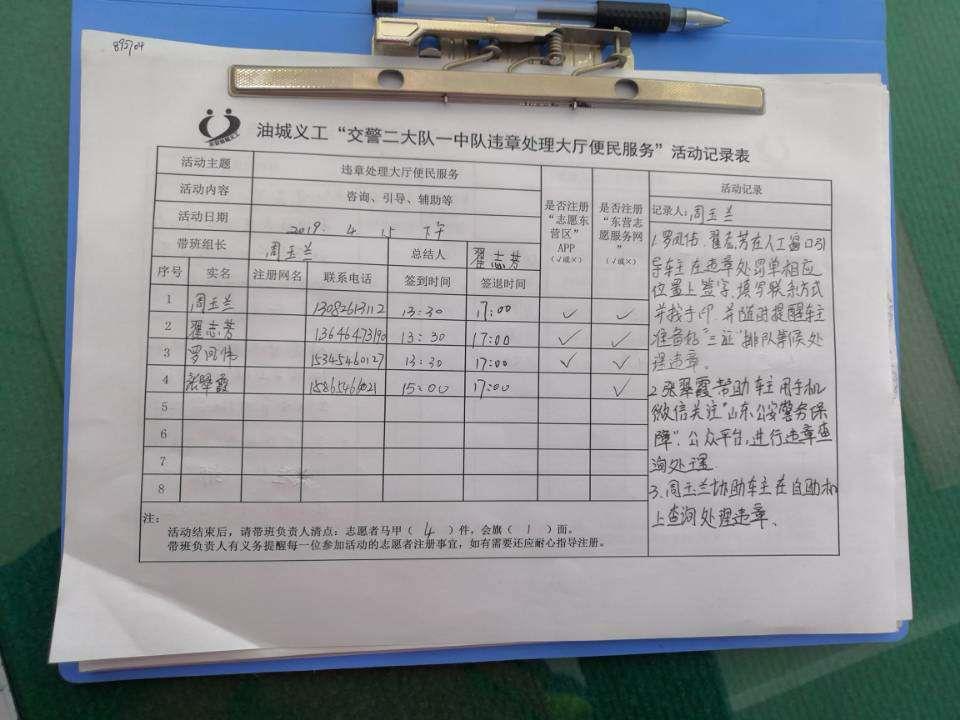 892704
油城义工“交警二大队一中队违章处理大厅便民服务”活动记录表
活动主题 违章处理大厅便民服务
活动内容 咨询、引导、辅助等
活动日期 2019. 4. 15 下午
带班组长 周玉兰 总结人 翟志芳
是否注册“志愿东营区”APP（√或×）
是否注册“东营志愿服务网”（√或×）
序号 实名 注册网名 联系电话 签到时间 签退时间
1 周玉兰 13082613112 13:30 17:00 ✓ ✓
2 翟志芳 13646473190 13:30 17:00 ✓ ✓
3 罗凤伟 15345460127 13:30 17:00 ✓ ✓
4 张翠霞 15:00 17:00 ✓
5
6
7
8
注：
活动结束后，请带班负责人清点：志愿者马甲（ 4 ）件，会旗（ 1 ）面。
带班负责人有义务提醒每一位参加活动的志愿者注册事宜，如有需要还应耐心指导注册。
活动记录
记录人：周玉兰
1.罗凤伟、翟志芳在人工窗口引
导车主在违章处罚单相应
位置上签字，填写联系方式
并按手印，并随时提醒车主
准备好“三证”排队等候处
理违章。
2.张翠霞帮助车主用手机
微信关注“山东公安警务保
障”公众平台，进行违章查
询处理
3.周玉兰协助车主在自助机
上查询处理违章、